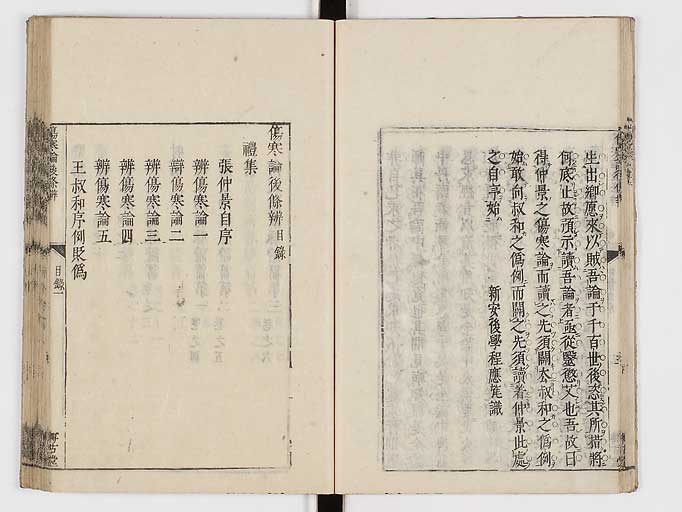 生出鄉愿來以賊吾論于千百世後恣其所猎將
何底止故預示讀吾論者亟從鑒懲艾也吾故曰
得仲景之傷寒論而讀之先須闢太叔和之僞例
始敢向叔和之僞例而闢之先須讀者仲景此處
之自序始
新安後學程應旄識
傷寒論後條辨目錄
禮集
張仲景自序
辨傷寒論一
辯傷寒論二
辨傷寒論三
辨傷寒論四
辨傷寒論五
王叔和序例貶僞
傷寒論後條辨
目錄一